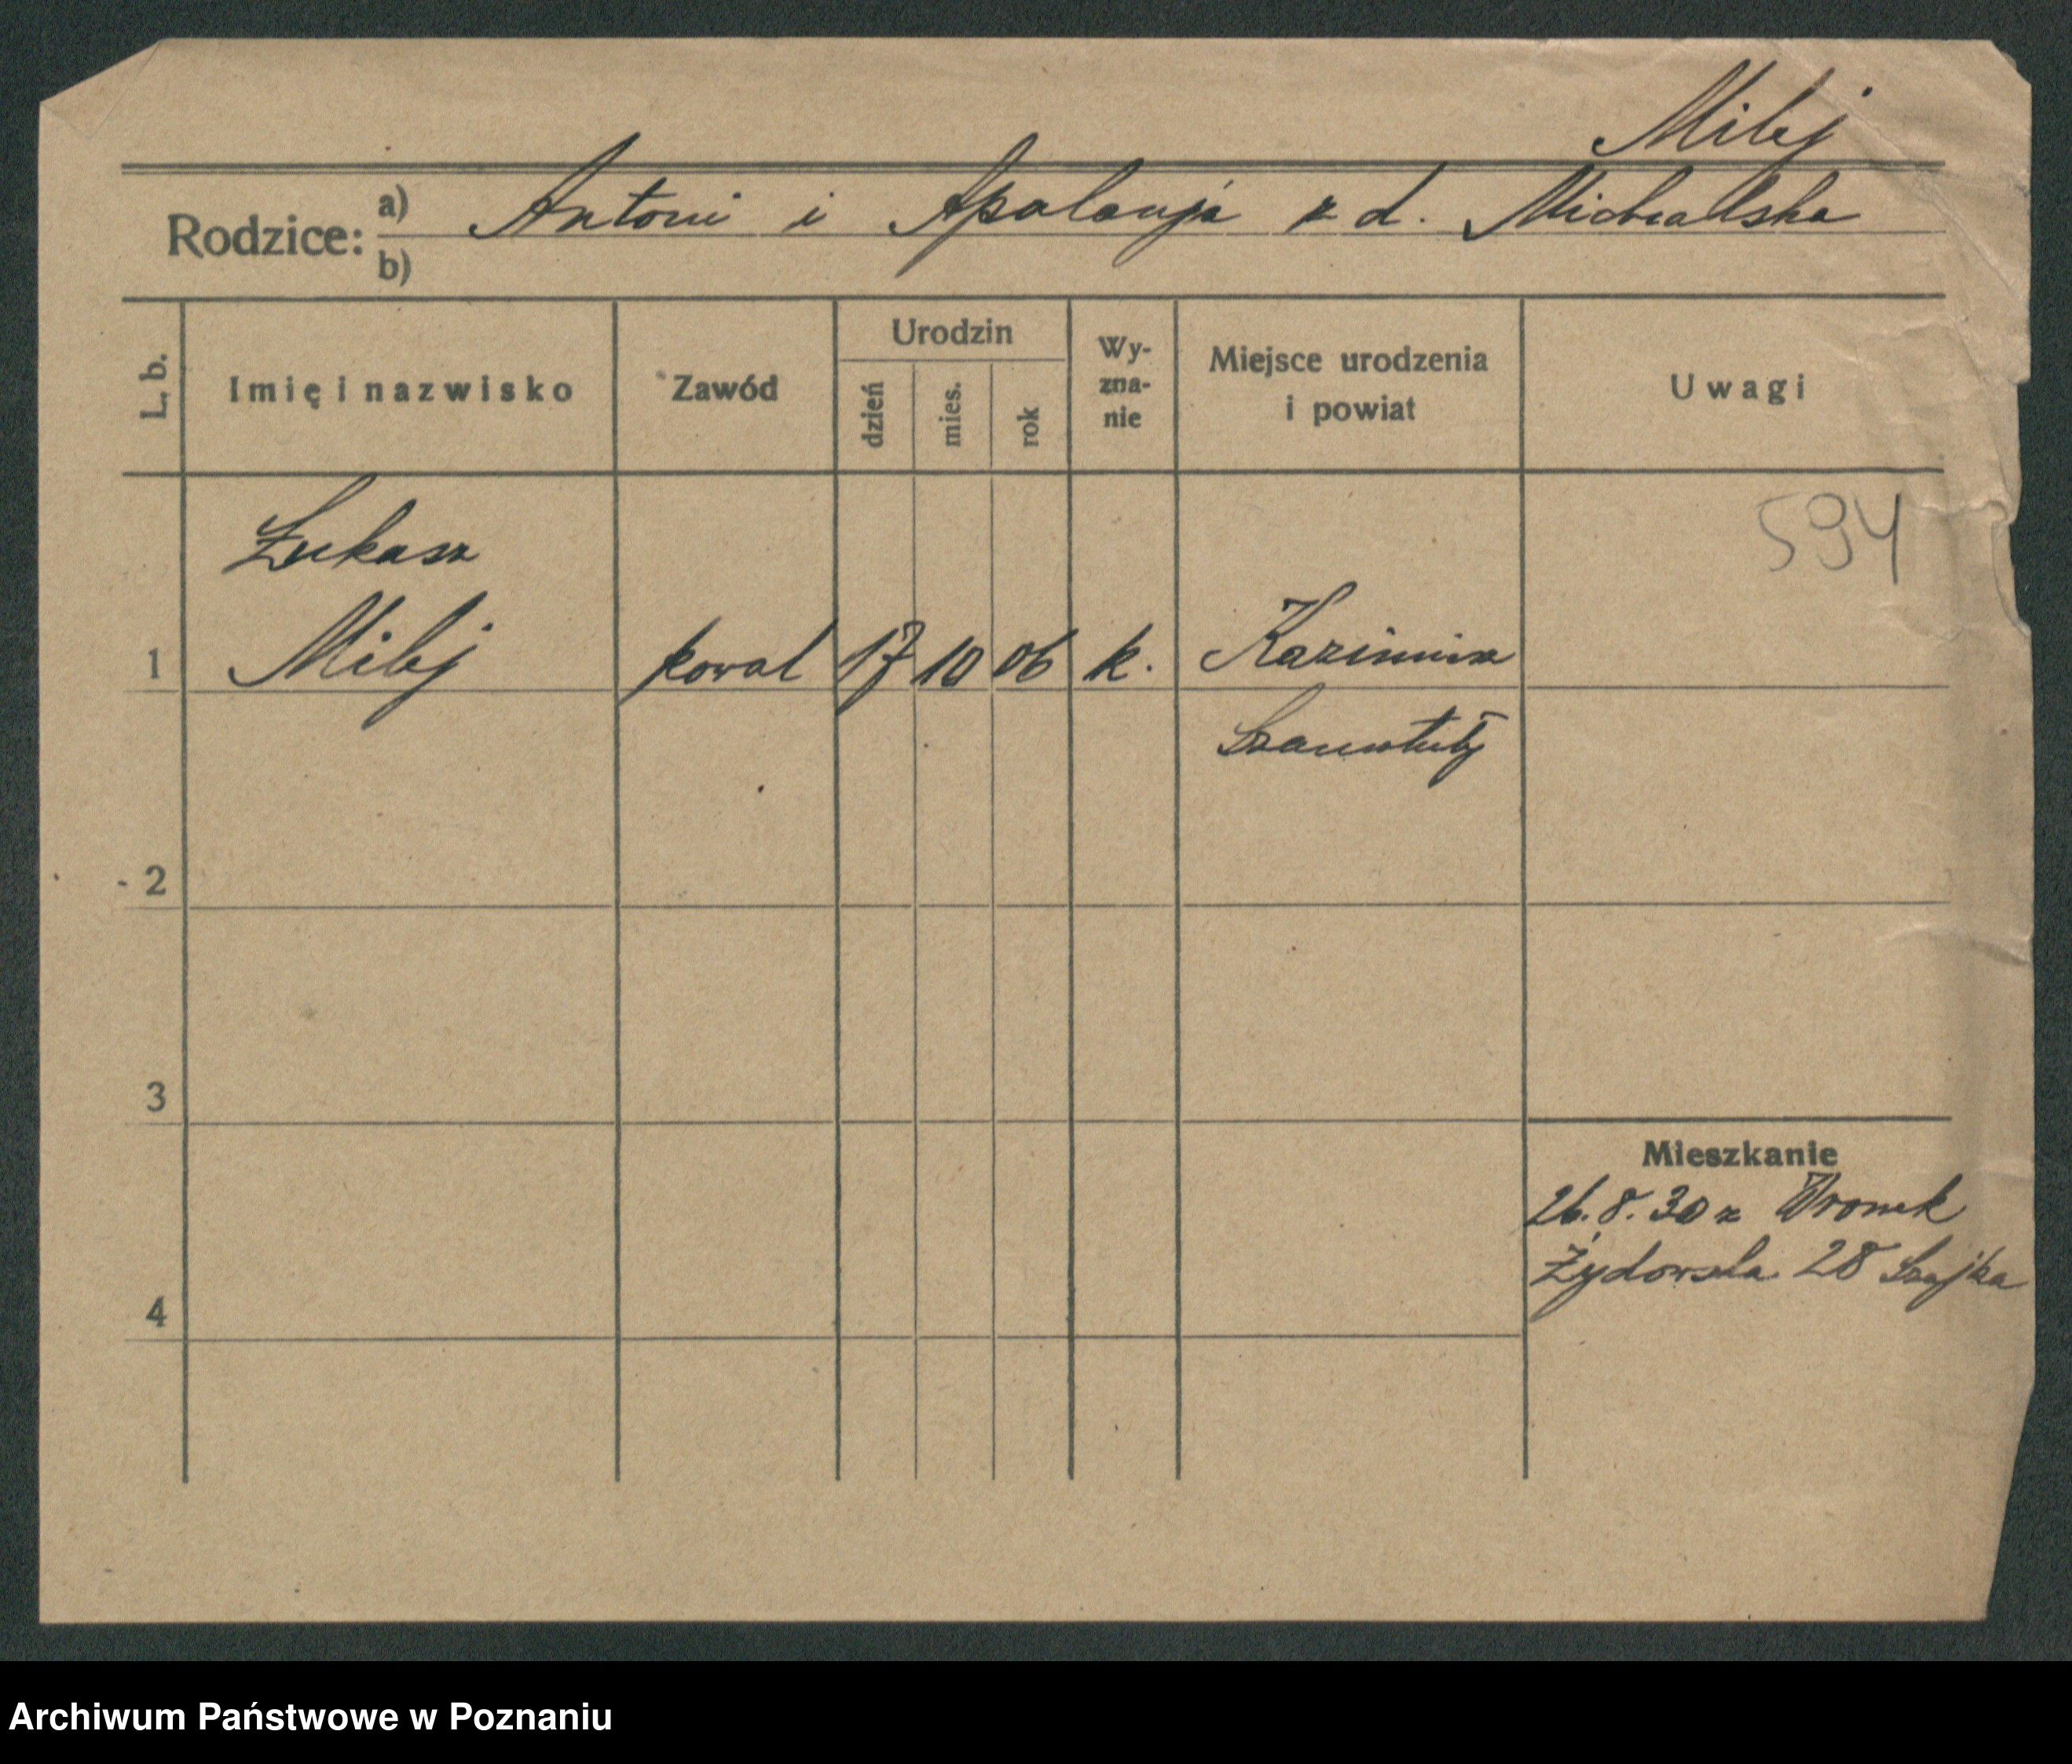 Milej
Rodzice: a) Antoni i Apolonja z d. Michalska
b)
L. b. Imię i nazwisko Zawód Urodzin dzień mies. rok Wy-zna-nie Miejsce urodzenia i powiat Uwagi
594
Łukasz
1 Milej kowal 17 10 06 k. Kazimierz
Szamotuły
2
3
Mieszkanie
26.8.30 z Wronek
Żydowska 28 Szajka
4
Archiwum Państwowe w Poznaniu